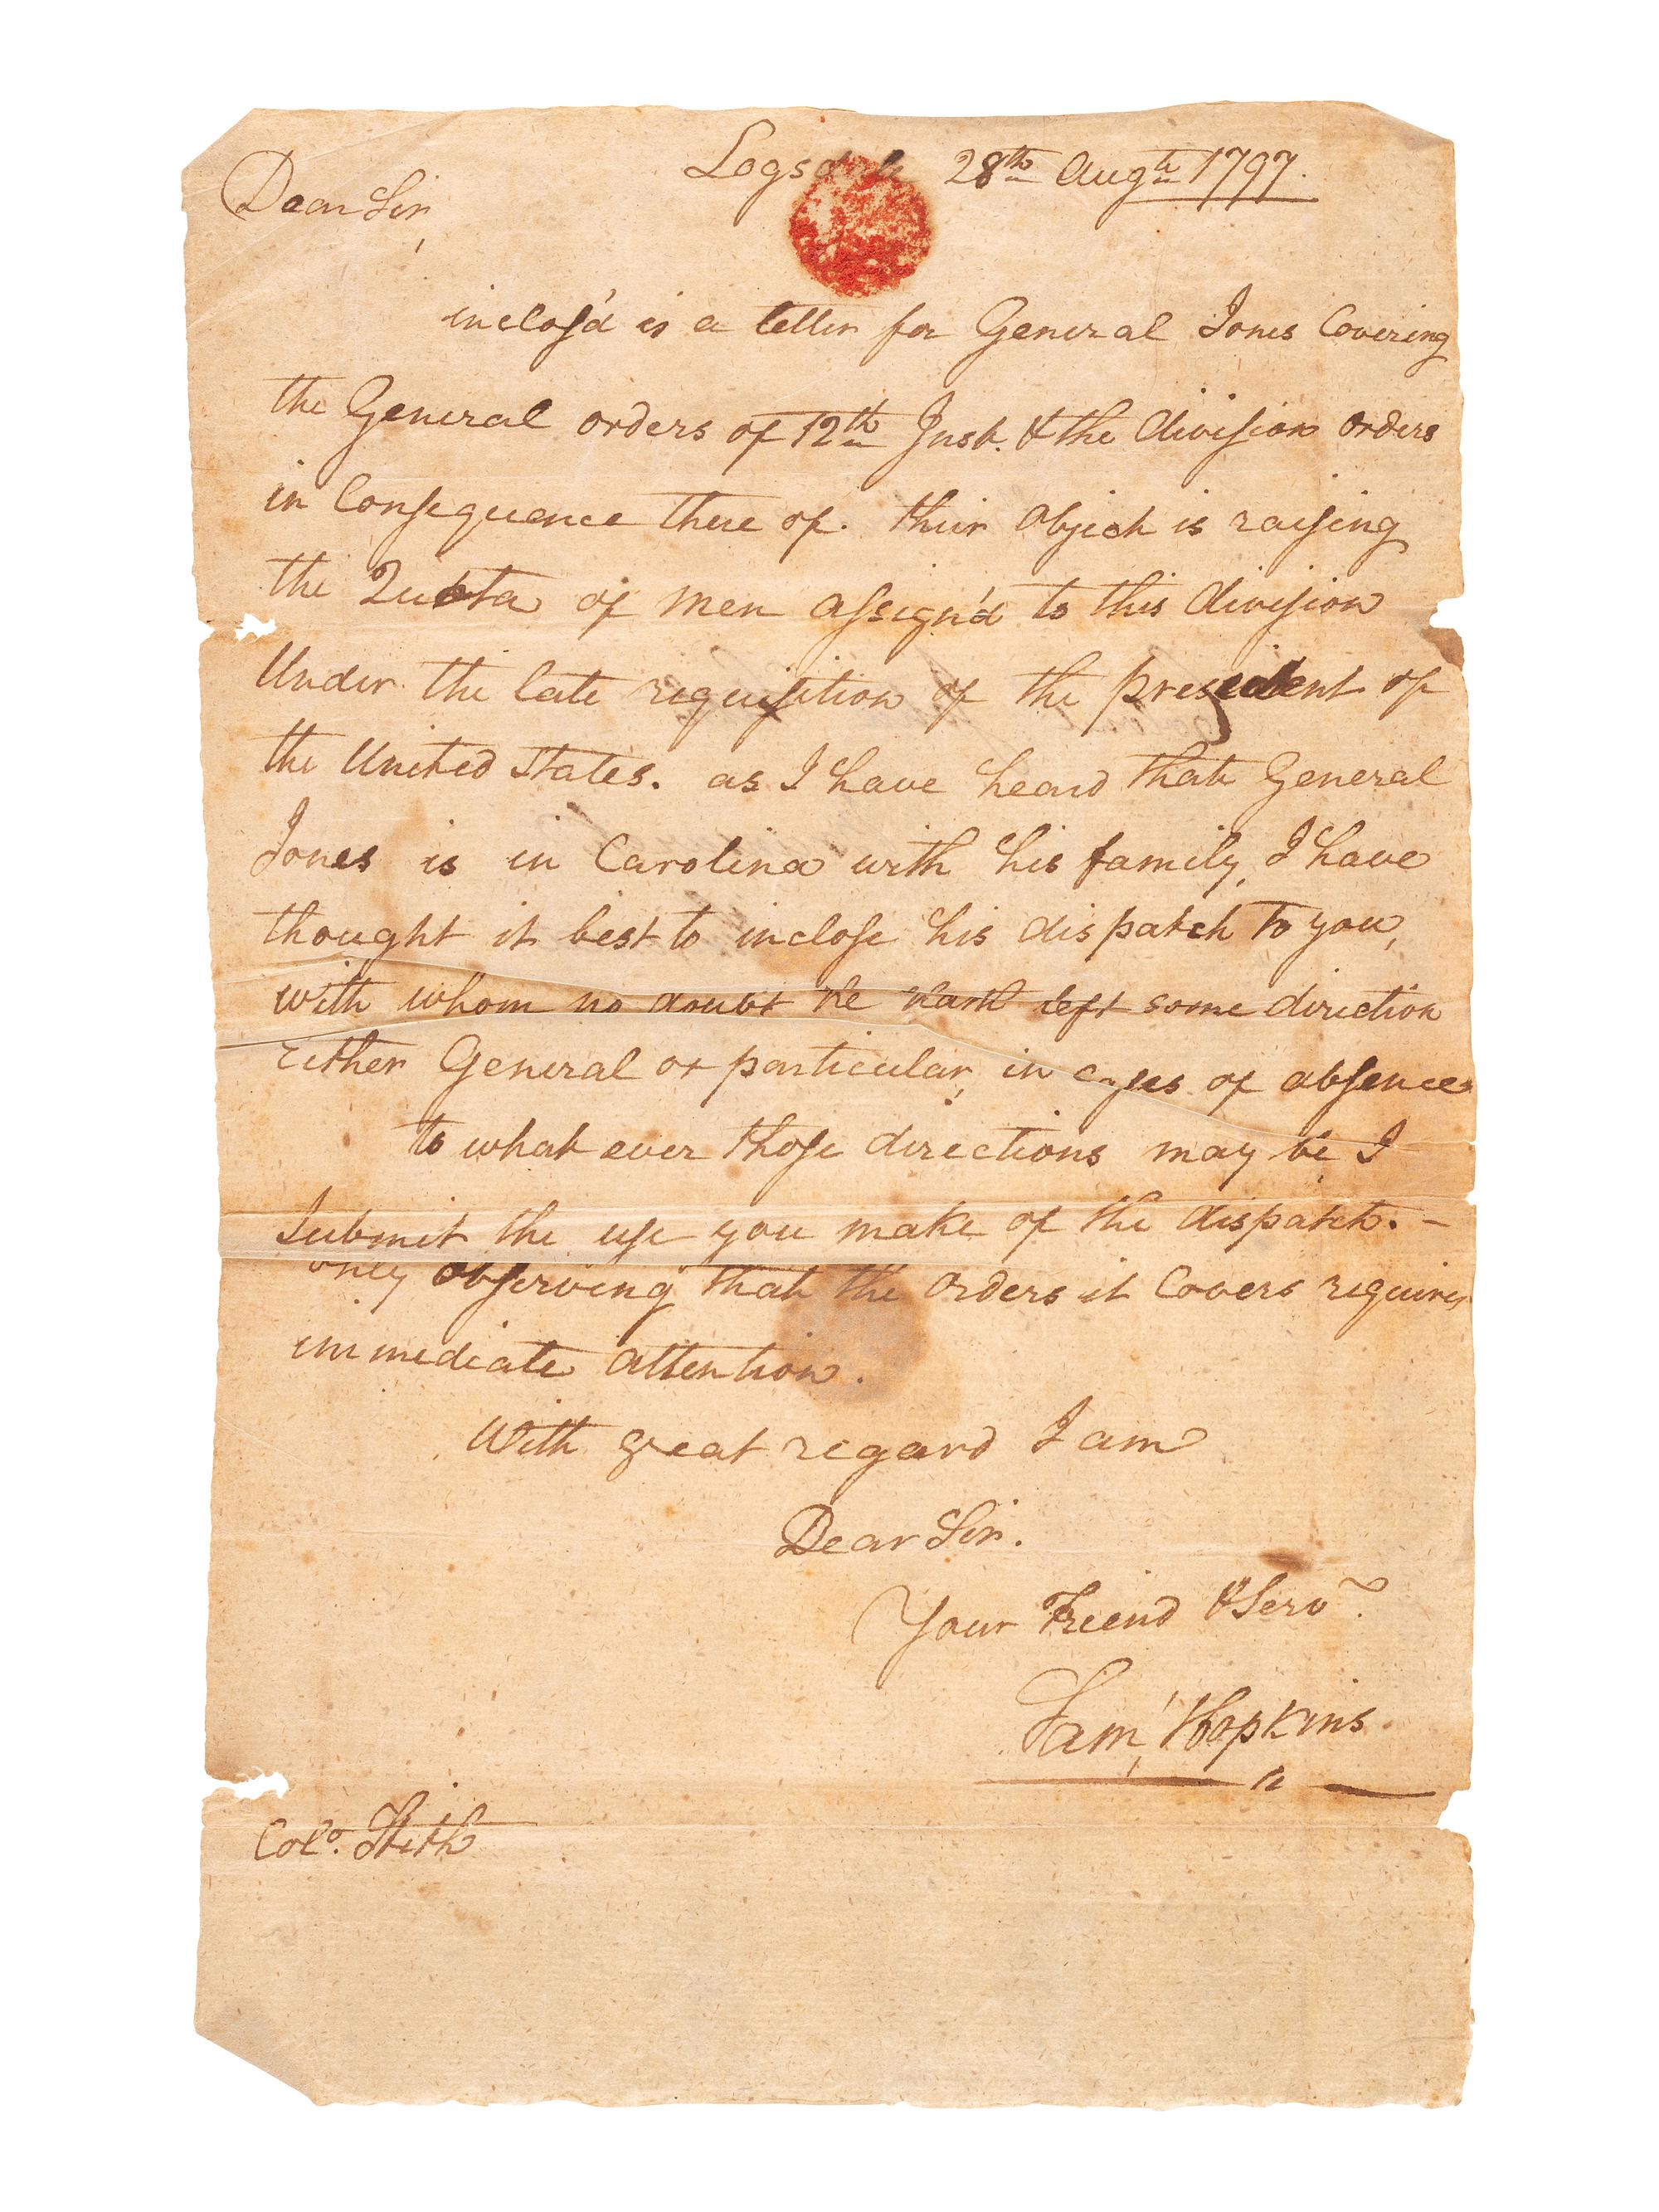 28th Augt 1797.
Dear Sir,
inclos'd is a letter for General Jones Covering
the General orders of 12th Inst. & the division orders
in Consequence there of. their Object is raising
the Quota of men assign'd to this division
Under the late requisition of the president of
the United States. as I have heard that General
Jones is in Carolina with his family, I have
thought it best to inclose his dispatch to you,
with whom no doubt he hath left some direction
either General or particular, in cases of absence
to what ever those directions may be I
Submit the use you make of the dispatch. -
only observing that the orders it Covers requires
immediate attention.
With great regard I am
Dear Sir.
Your Friend & Serv.
Saml Hopkins
Colo. Stith